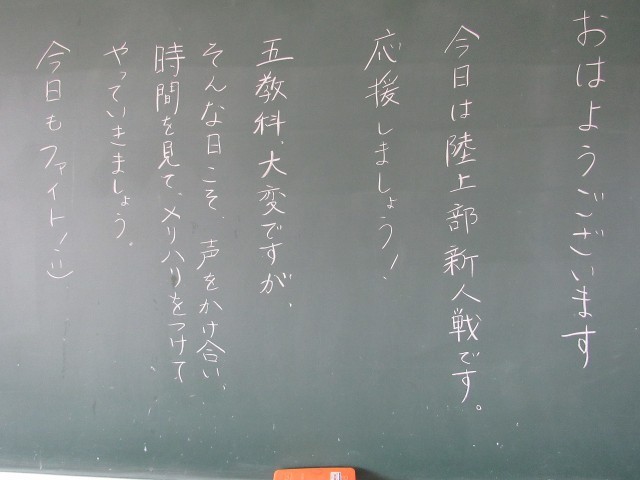 おはようございます
今日は陸上部新人戦です。
応援しましょう!
五教科、大変ですが、
そんな日こそ、声をかけ合い、
時間を見て、メリハリをつけて
やっていきましょう。
今日もファイト!:)